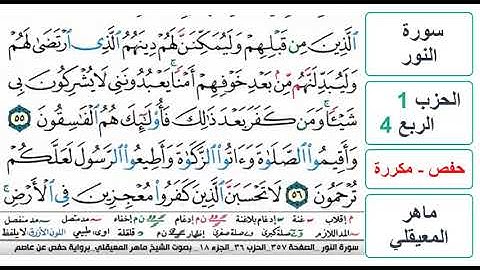 الَّذِينَ مِن قَبْلِهِمْ وَلَيُمَكِّنَنَّ لَهُمْ دِينَهُمُ الَّذِى ارْتَضَىٰ لَهُمْ
وَلَيُبَدِّلَنَّهُم مِّنۢ بَعْدِ خَوْفِهِمْ أَمْنًا ۚ يَعْبُدُونَنِى لَا يُشْرِكُونَ بِى
شَيْـًٔا ۚ وَمَن كَفَرَ بَعْدَ ذَٰلِكَ فَأُو۟لَـٰٓئِكَ هُمُ الْفَـٰسِقُونَ ٥٥
وَأَقِيمُوا۟ الصَّلَوٰةَ وَءَاتُوا۟ الزَّكَوٰةَ وَأَطِيعُوا۟ الرَّسُولَ لَعَلَّكُمْ
تُرْحَمُونَ ٥٦ لَا تَحْسَبَنَّ الَّذِينَ كَفَرُوا۟ مُعْجِزِينَ فِى الْأَرْضِ ۚ
سورة النور ـ الصفحة ٣٥٧ ـ الحزب ٣٦ ـ الجزء ١٨ ـ بصوت الشيخ ماهر المعيقلي ـ برواية حفص عن عاصم
سورة
النور
الحزب 1
الربع 4
حفص - مكررة
ماهر
المعيقلي